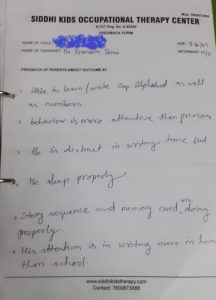 SIDDHI KIDS OCCUPATIONAL THERAPY CENTER
FEEDBACK FORM
NAME OF CHILD
NAME OF THERAPIST Dr.
FEEDBACK OF PARENTS ABOUT OUTCOME AT
Able to learn/write cap alphabet as well
as numbers.
behaviour is more attentive than previous
He is distract in writing time but
He sleep properly
Story sequence and memory card are doing
properly.
His attention is in writing more in home
than school.
www.siddhikidstherapy.com
Contact: 7900873888